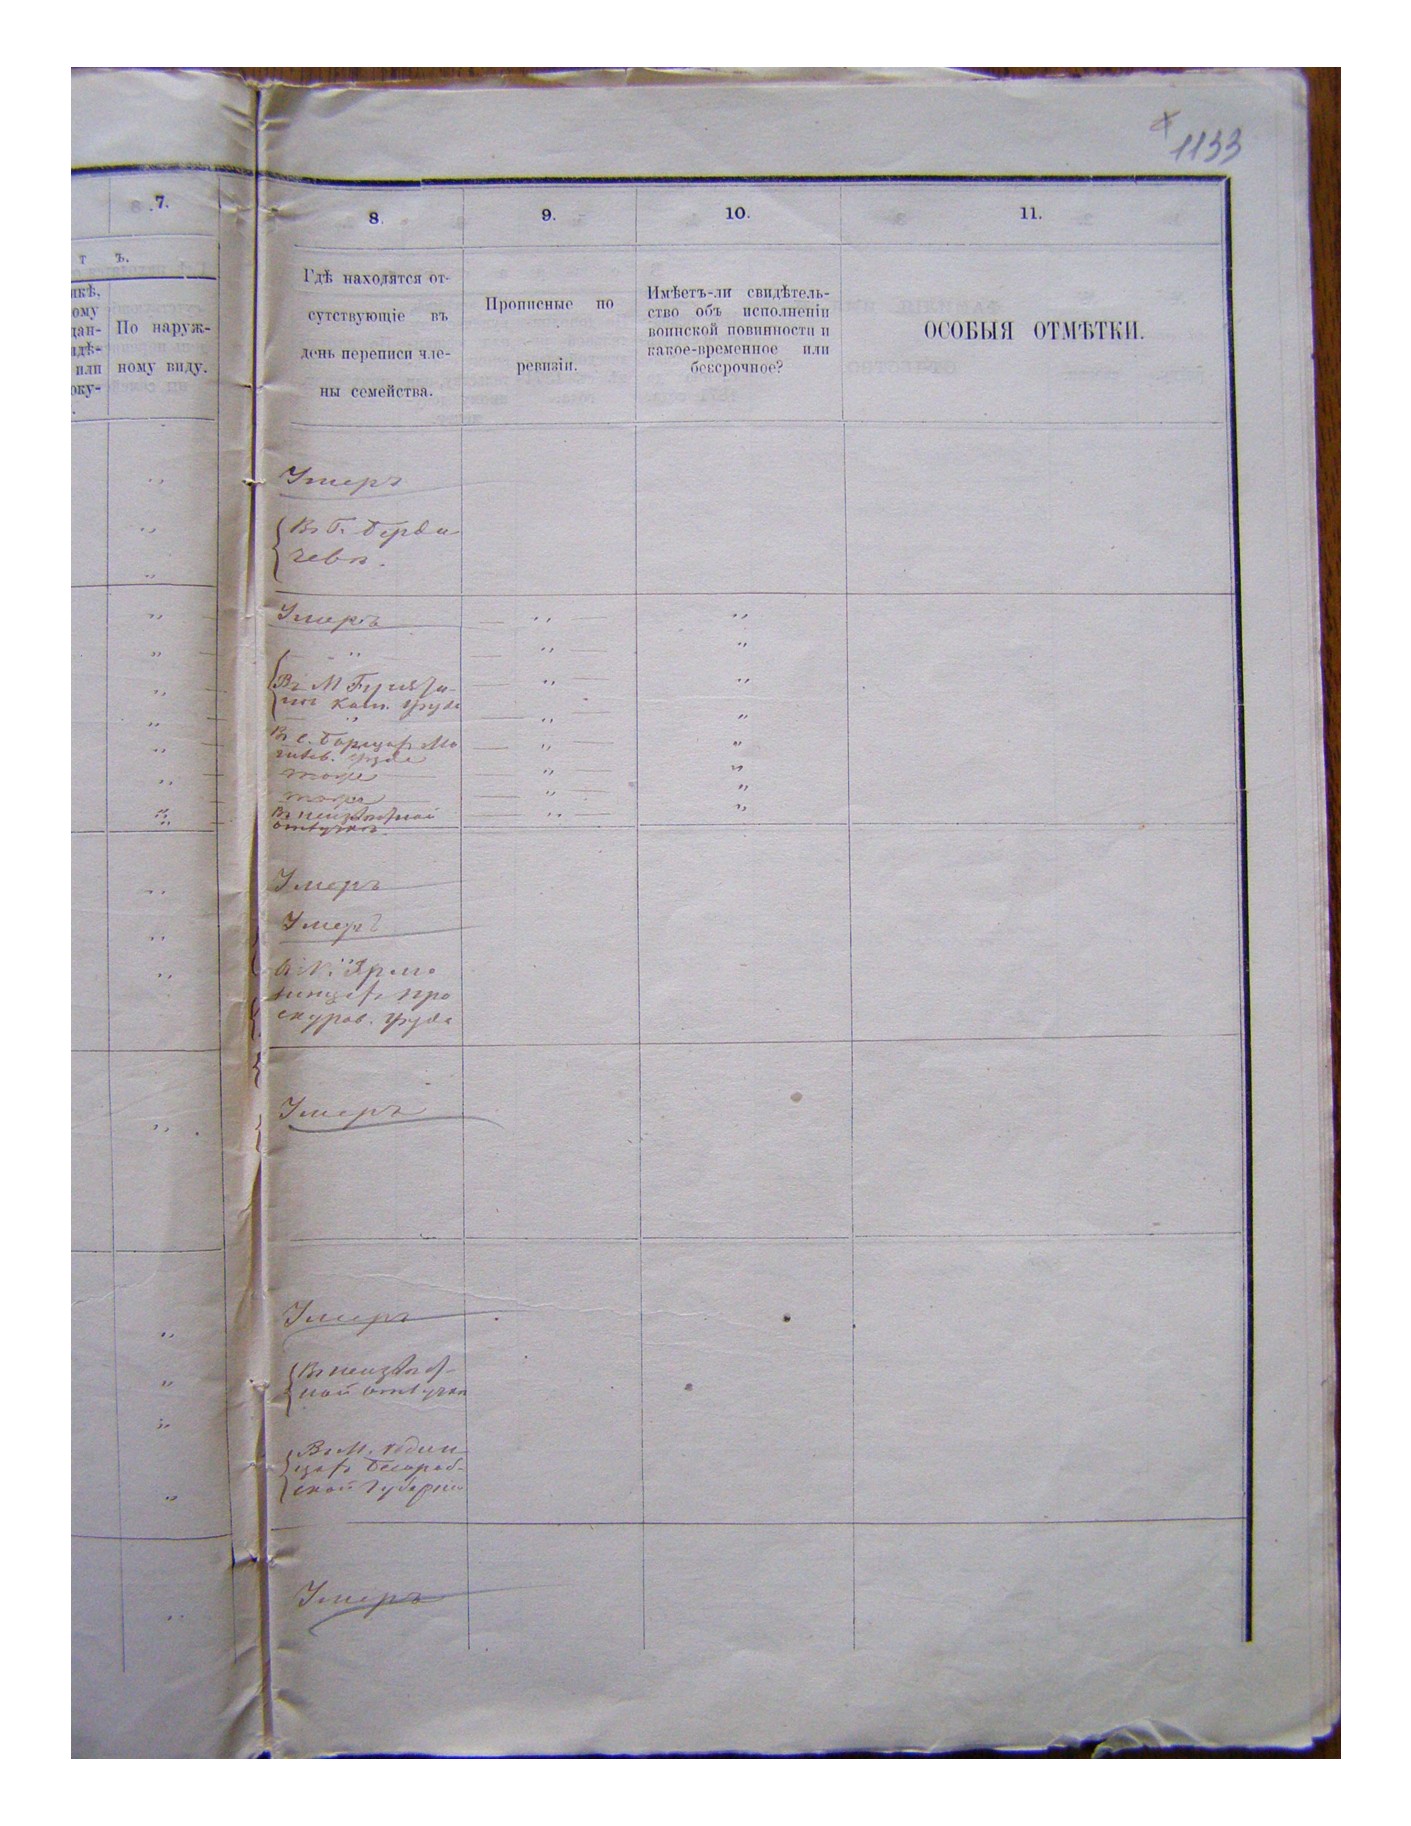 1133
7.
8.
9.
10.
11.
т ъ.
По наруж-
ному виду.
Гдѣ находятся от-
сутствующіе въ
день переписи чле-
ны семейства.
Прописные по
ревизіи.
Имѣетъ-ли свидѣтель-
ство объ исполненіи
воинской повинности и
какое-временное или
бессрочное?
ОСОБЫЯ ОТМѢТКИ.
Умеръ
Въ Г. Берди-
чевѣ.
Умеръ
Въ М
Кам. уѣзда
Въ С. Мо
гилев. уѣзда
тоже
тоже
Въ неизвѣстной
отлучкѣ.
Умеръ
Умеръ
Ярмо
линцахъ Про
скуров. уѣзда
Умеръ
Умеръ
Въ неизвѣст-
ной отлучкѣ
Въ М.
цахъ Бесараб-
ской Губерніи
Умеръ